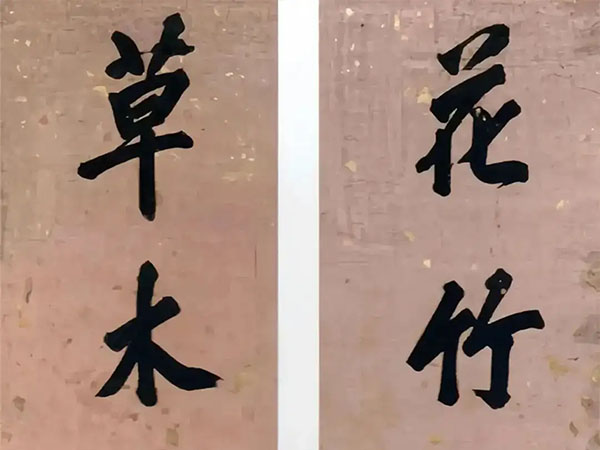 花竹
草木